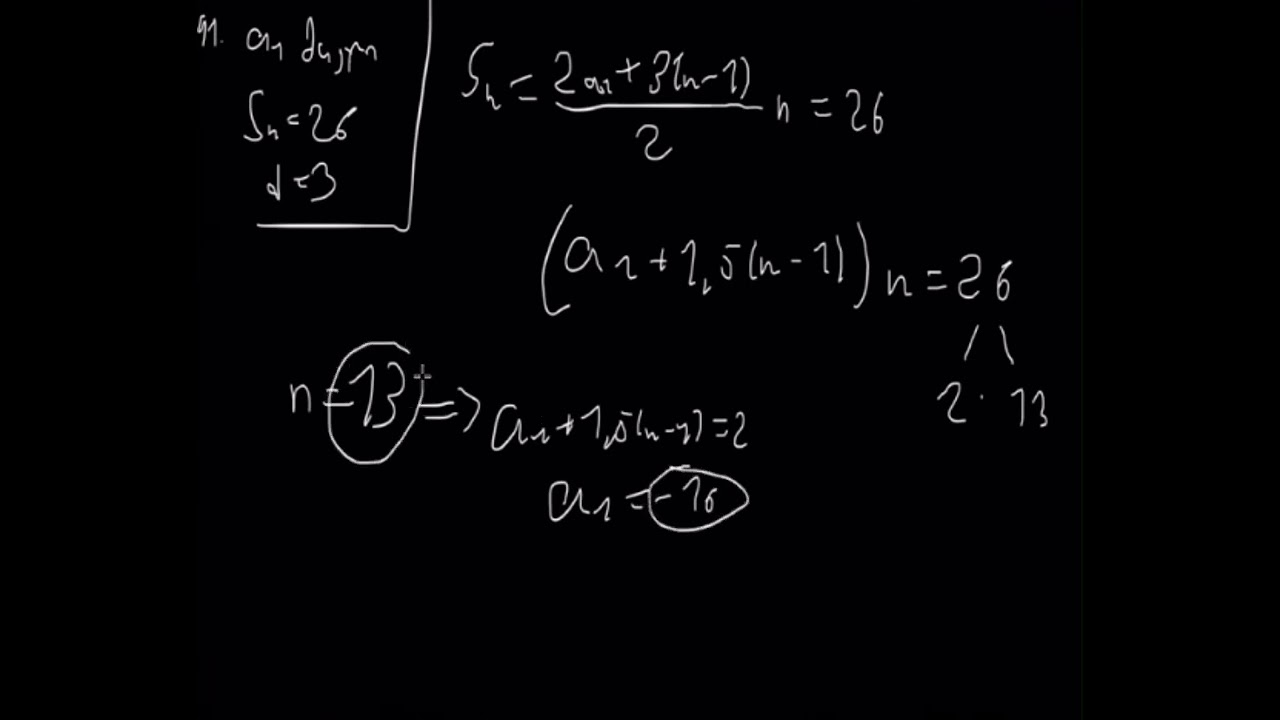 91. a₁
Sₙ = 26
d = 3
Sₙ = (2a₁ + 3(n-1))/2 n = 26
(a₁ + 1,5(n-1)) n = 26
2 · 13
n = 13 => a₁ + 1,5(n-1) = 2
a₁ = -16